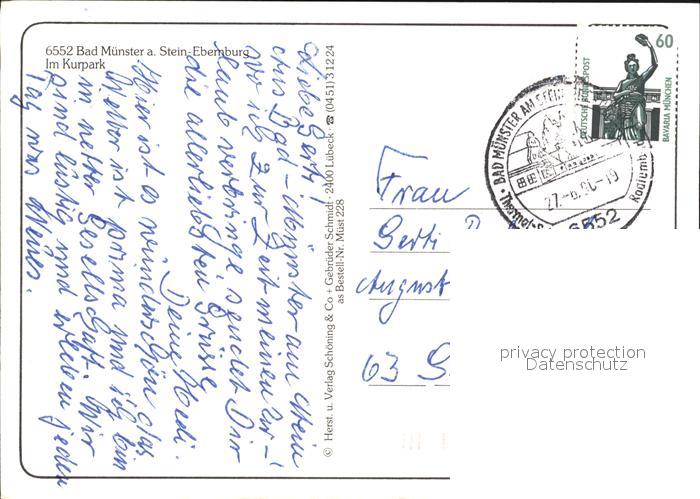 6552 Bad Münster a. Stein-Ebernburg
Im Kurpark
Liebe Gerti!
Aus Bad-Münster am Stein
wo ich zur Zeit meinen Ur-
laub verbringe sendet Dir
die allerliebsten Grüsse
Deine Hedi.
Hier ist es wunderschön das
Wetter ist prima und ich bin
in netter Gesellschaft. Wir
sind lustig und erleben jeden
Tag was Neues.
© Herst. u. Verlag Schöning & Co + Gebrüder Schmidt · 2400 Lübeck · ☎ (0451) 31224
as Bestell-Nr. Müst 228
60
DEUTSCHE BUNDESPOST
BAVARIA MÜNCHEN
BAD MÜNSTER AM STEIN
27.-9.90-19
6552
Frau
Gerti
August
63 G
privacy protection
Datenschutz